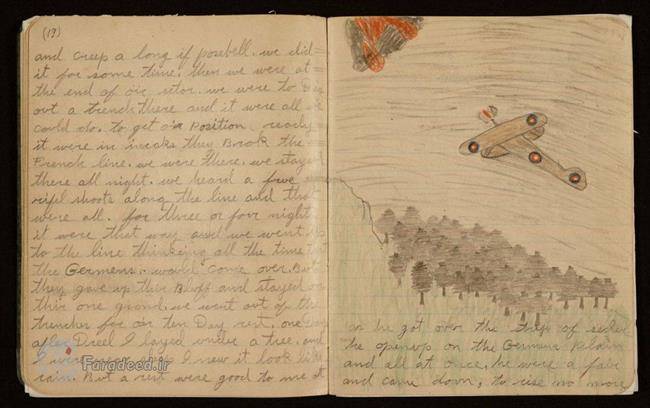 (13)
and creep a long if posebell. we did
it for some time. then we were at
the end of our setor. we were to Dig
out a trench there and it were all we
could do. to get our Position ready
it were in incaks they Brook the
French line. we were there. we stayed
there all night. we heard a fwe
rifel shoots along the line and that
were all. for three or four night
it were that way. and we went
to the line thinking all the time that
the Germens. would come over. But
they gave up this Bluff and stayed on
thir one grond. we went out of the
trenches for our ten Day rest. one Day
after Dreel I layed under a tree. and
I new it look like
rain. But a rest were good to me at
Faradeed.ir
as he got over the strip of
he openup on the Germans Plain
and all at once. he were a fair
and came down, to rise no more